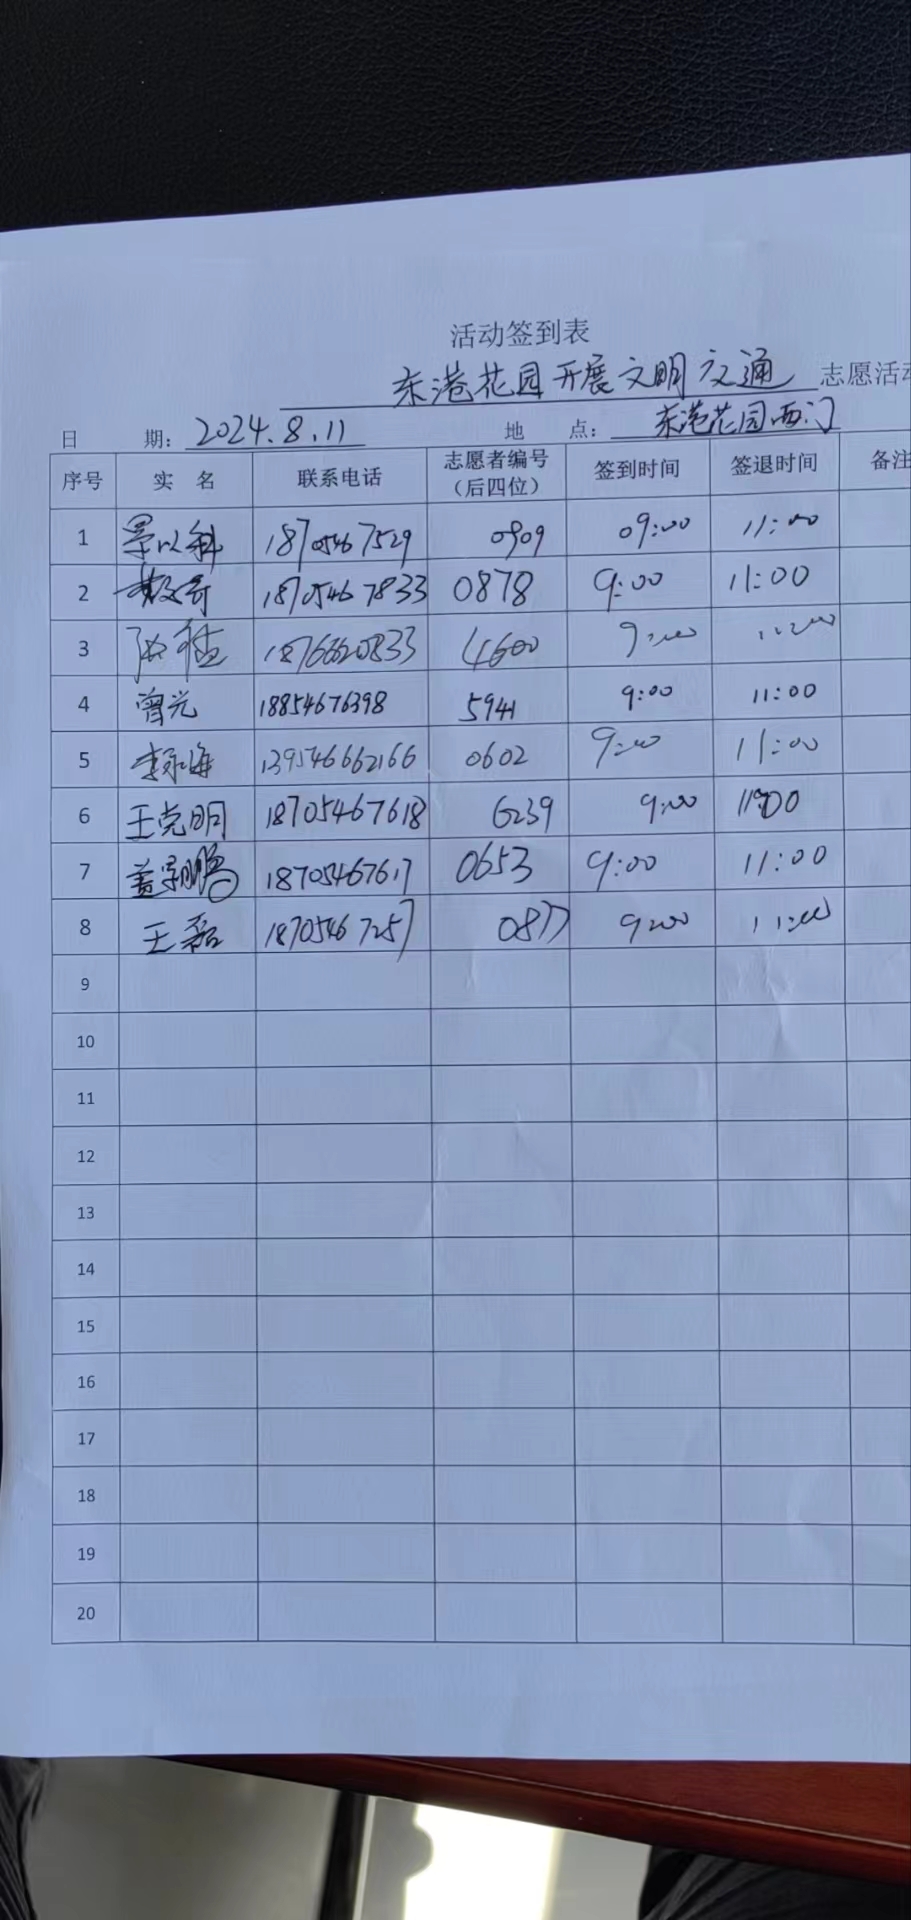 活动签到表
东港花园开展文明交通 志愿活动
日 期: 2024.8.11 地 点: 东港花园西门
序号 实 名 联系电话 志愿者编号(后四位) 签到时间 签退时间 备注
1 18705467529 0909 09:00 11:00
2 18705467833 0878 9:00 11:00
3 18766620833 4600 9:00
4 曾光 18854676398 5941 9:00 11:00
5 李永海 139546662166 0602 9:00 11:00
6 王克明 18705467618 6239 9:00 11:00
7 盖景鹏 18705467617 0653 9:00 11:00
8 王磊 18705467257 0877 9:00 11:00
9
10
11
12
13
14
15
16
17
18
19
20